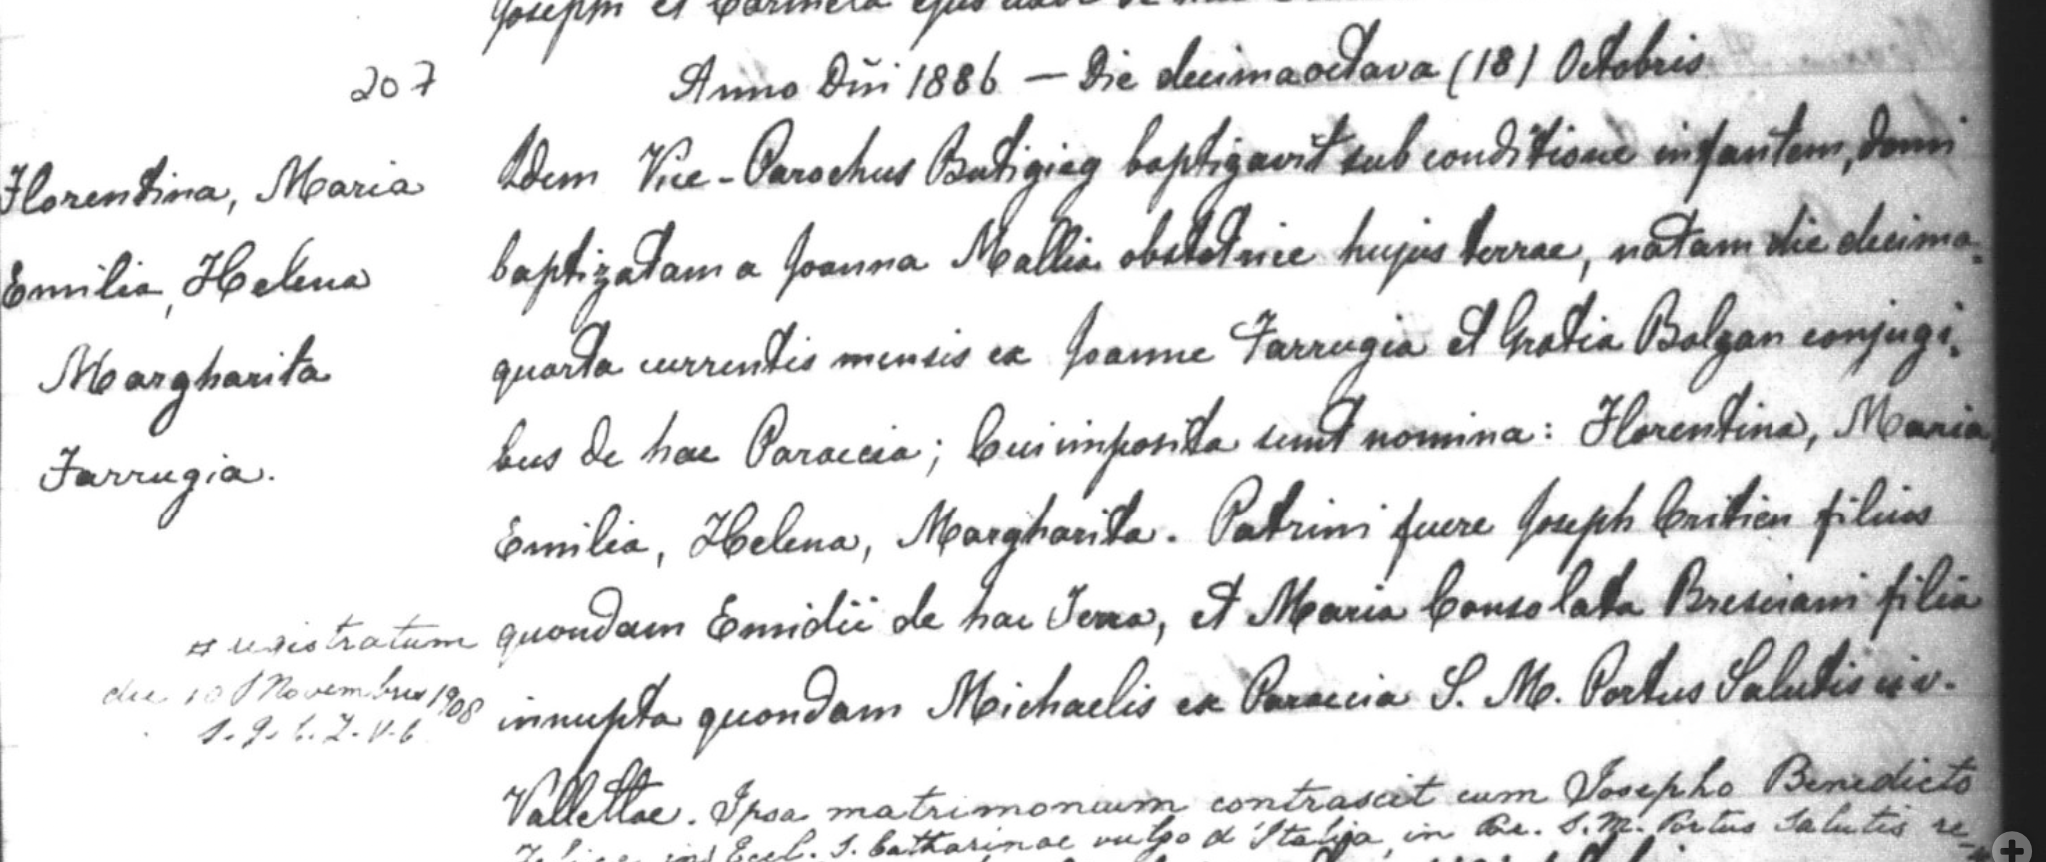 Joseph et Carmela ejus
207
Anno Dñi 1886 — Die decimaoctava (18) Octobris
Florentina, Maria
Emilia, Helena
Margharita
Farrugia.
Idem Vice-Parochus Butigieg baptizavit sub conditione infantem, domi
baptizatam a Joanna Mallia obstetrice hujus terrae, natam die decima-
quarta currentis mensis ex Joanne Farrugia et Gratia Balzan conjugi-
bus de hac Paraecia; Cui imposita sunt nomina: Florentina, Maria,
Emilia, Helena, Margharita. Patrini fuere Joseph Critien filius
quondam Emidii de hac Terra, et Maria Consolata Bresciani filia
innupta quondam Michaelis ex Paraecia S. M. Portus Salutis civ.
registratum
die 10 Novembris 1908
Vallettae. Ipsa matrimonium contraxit cum Josepho Benedicto
Eccl. S. Catharinae vulgo d'Italija, in Par. S. M. Portus Salutis